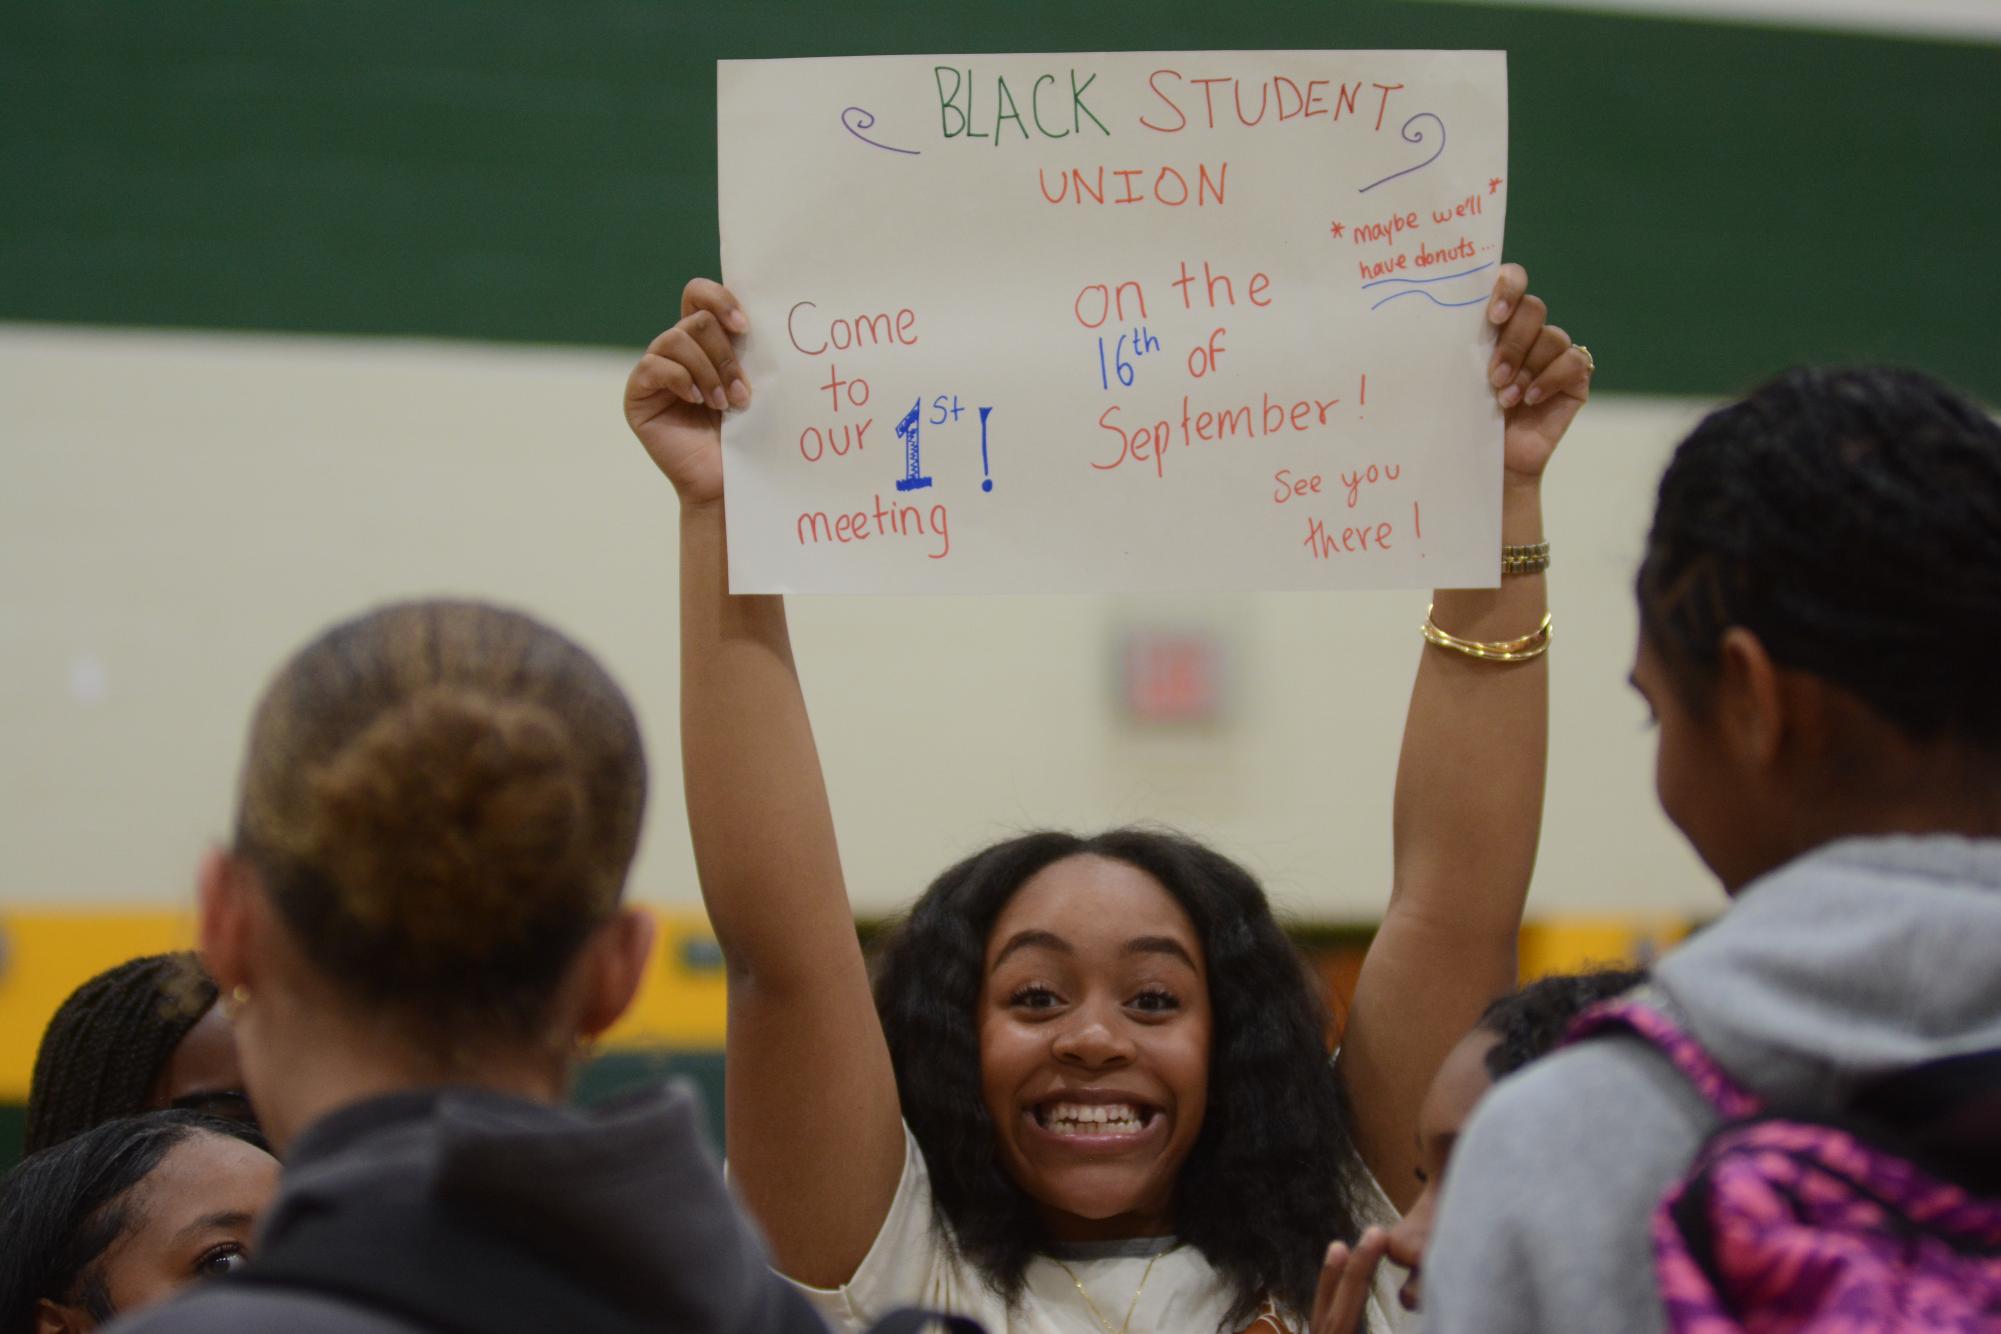 BLACK STUDENT
UNION
*maybe we'll*
have donuts...
Come
to
our 1st!
meeting
on the
16th of
September!
See you
there!